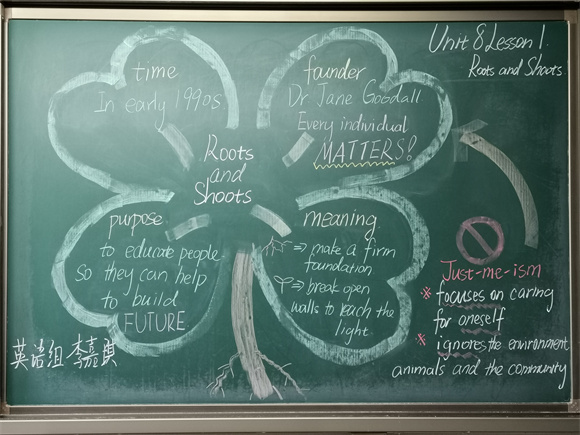 Unit 8 Lesson 1.
Roots and Shoots.
time
In early 1990s
founder
Dr Jane Goodall.
Every individual
MATTERS!
Roots
and
Shoots
purpose
to educate people
So they can help
to build
FUTURE
meaning
⇒ make a firm
foundation
⇒ break open
walls to reach the
light
Just-me-ism
* focuses on caring
for oneself
* ignores the environment,
animals and the community
英语组 李嘉琪